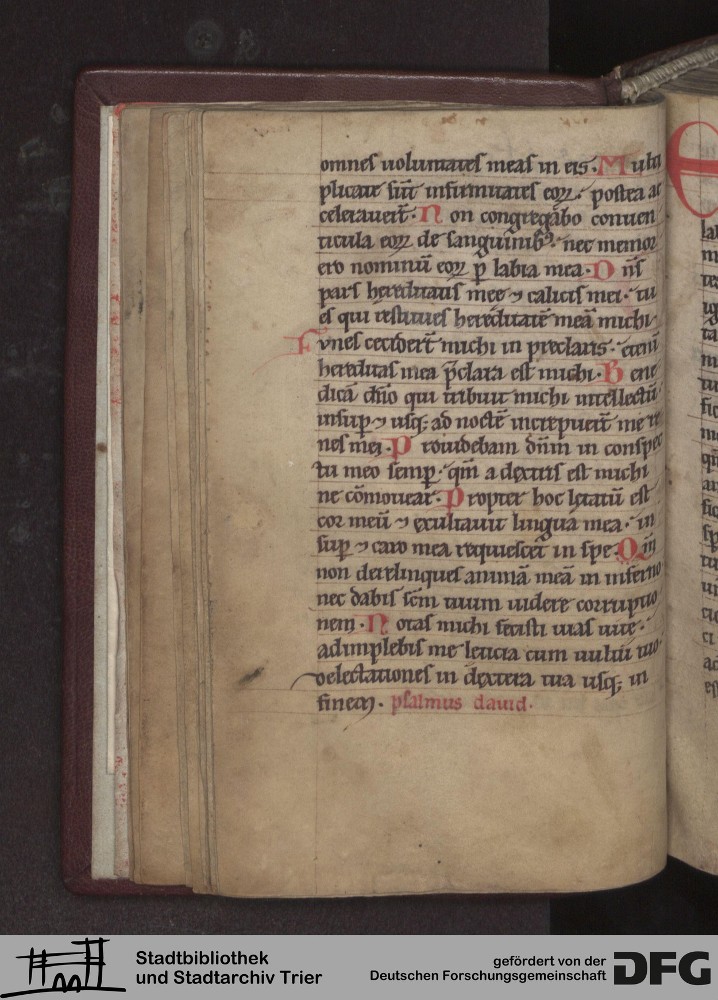 omnes uoluntates meas in eis. Multi
plicate sūt infirmitates eoꝝ. postea ac
celerauert̄. Non congregabo conuen
ticula eoꝝ de sanguinib; nec memor
ero nominū eoꝝ p̄ labia mea. Dn̄s
pars hereditatis mee ⁊ calicis mei. tu
es qui restitues hereditatē meā michi.
Funes cecidert̄ michi in preclaris. etenī
hereditas mea p̄clara est michi. Bene
dicā dn̄o qui tribuit michi intellectū.
insup̄ ⁊ usq; ad noctē increpuert̄ me re
nes mei. Prouidebam dn̄m in conspec
tu meo semp̄. qm̄ a dextris est michi
ne cōmouear. Propter hoc letatū est
cor meū ⁊ exultauit lingua mea. in
sup̄ ⁊ caro mea requiescet in spe. Qm̄
non derelinques animā meā in inferno
nec dabis scm̄ tuum uidere corruptio
nem. Notas michi fecisti uias uite.
adimplebis me leticia cum uultu tuo.
delectationes in dextera tua usq; in
finem. psalmus dauid.
Stadtbibliothek
und Stadtarchiv Trier
gefördert von der
Deutschen Forschungsgemeinschaft
DFG